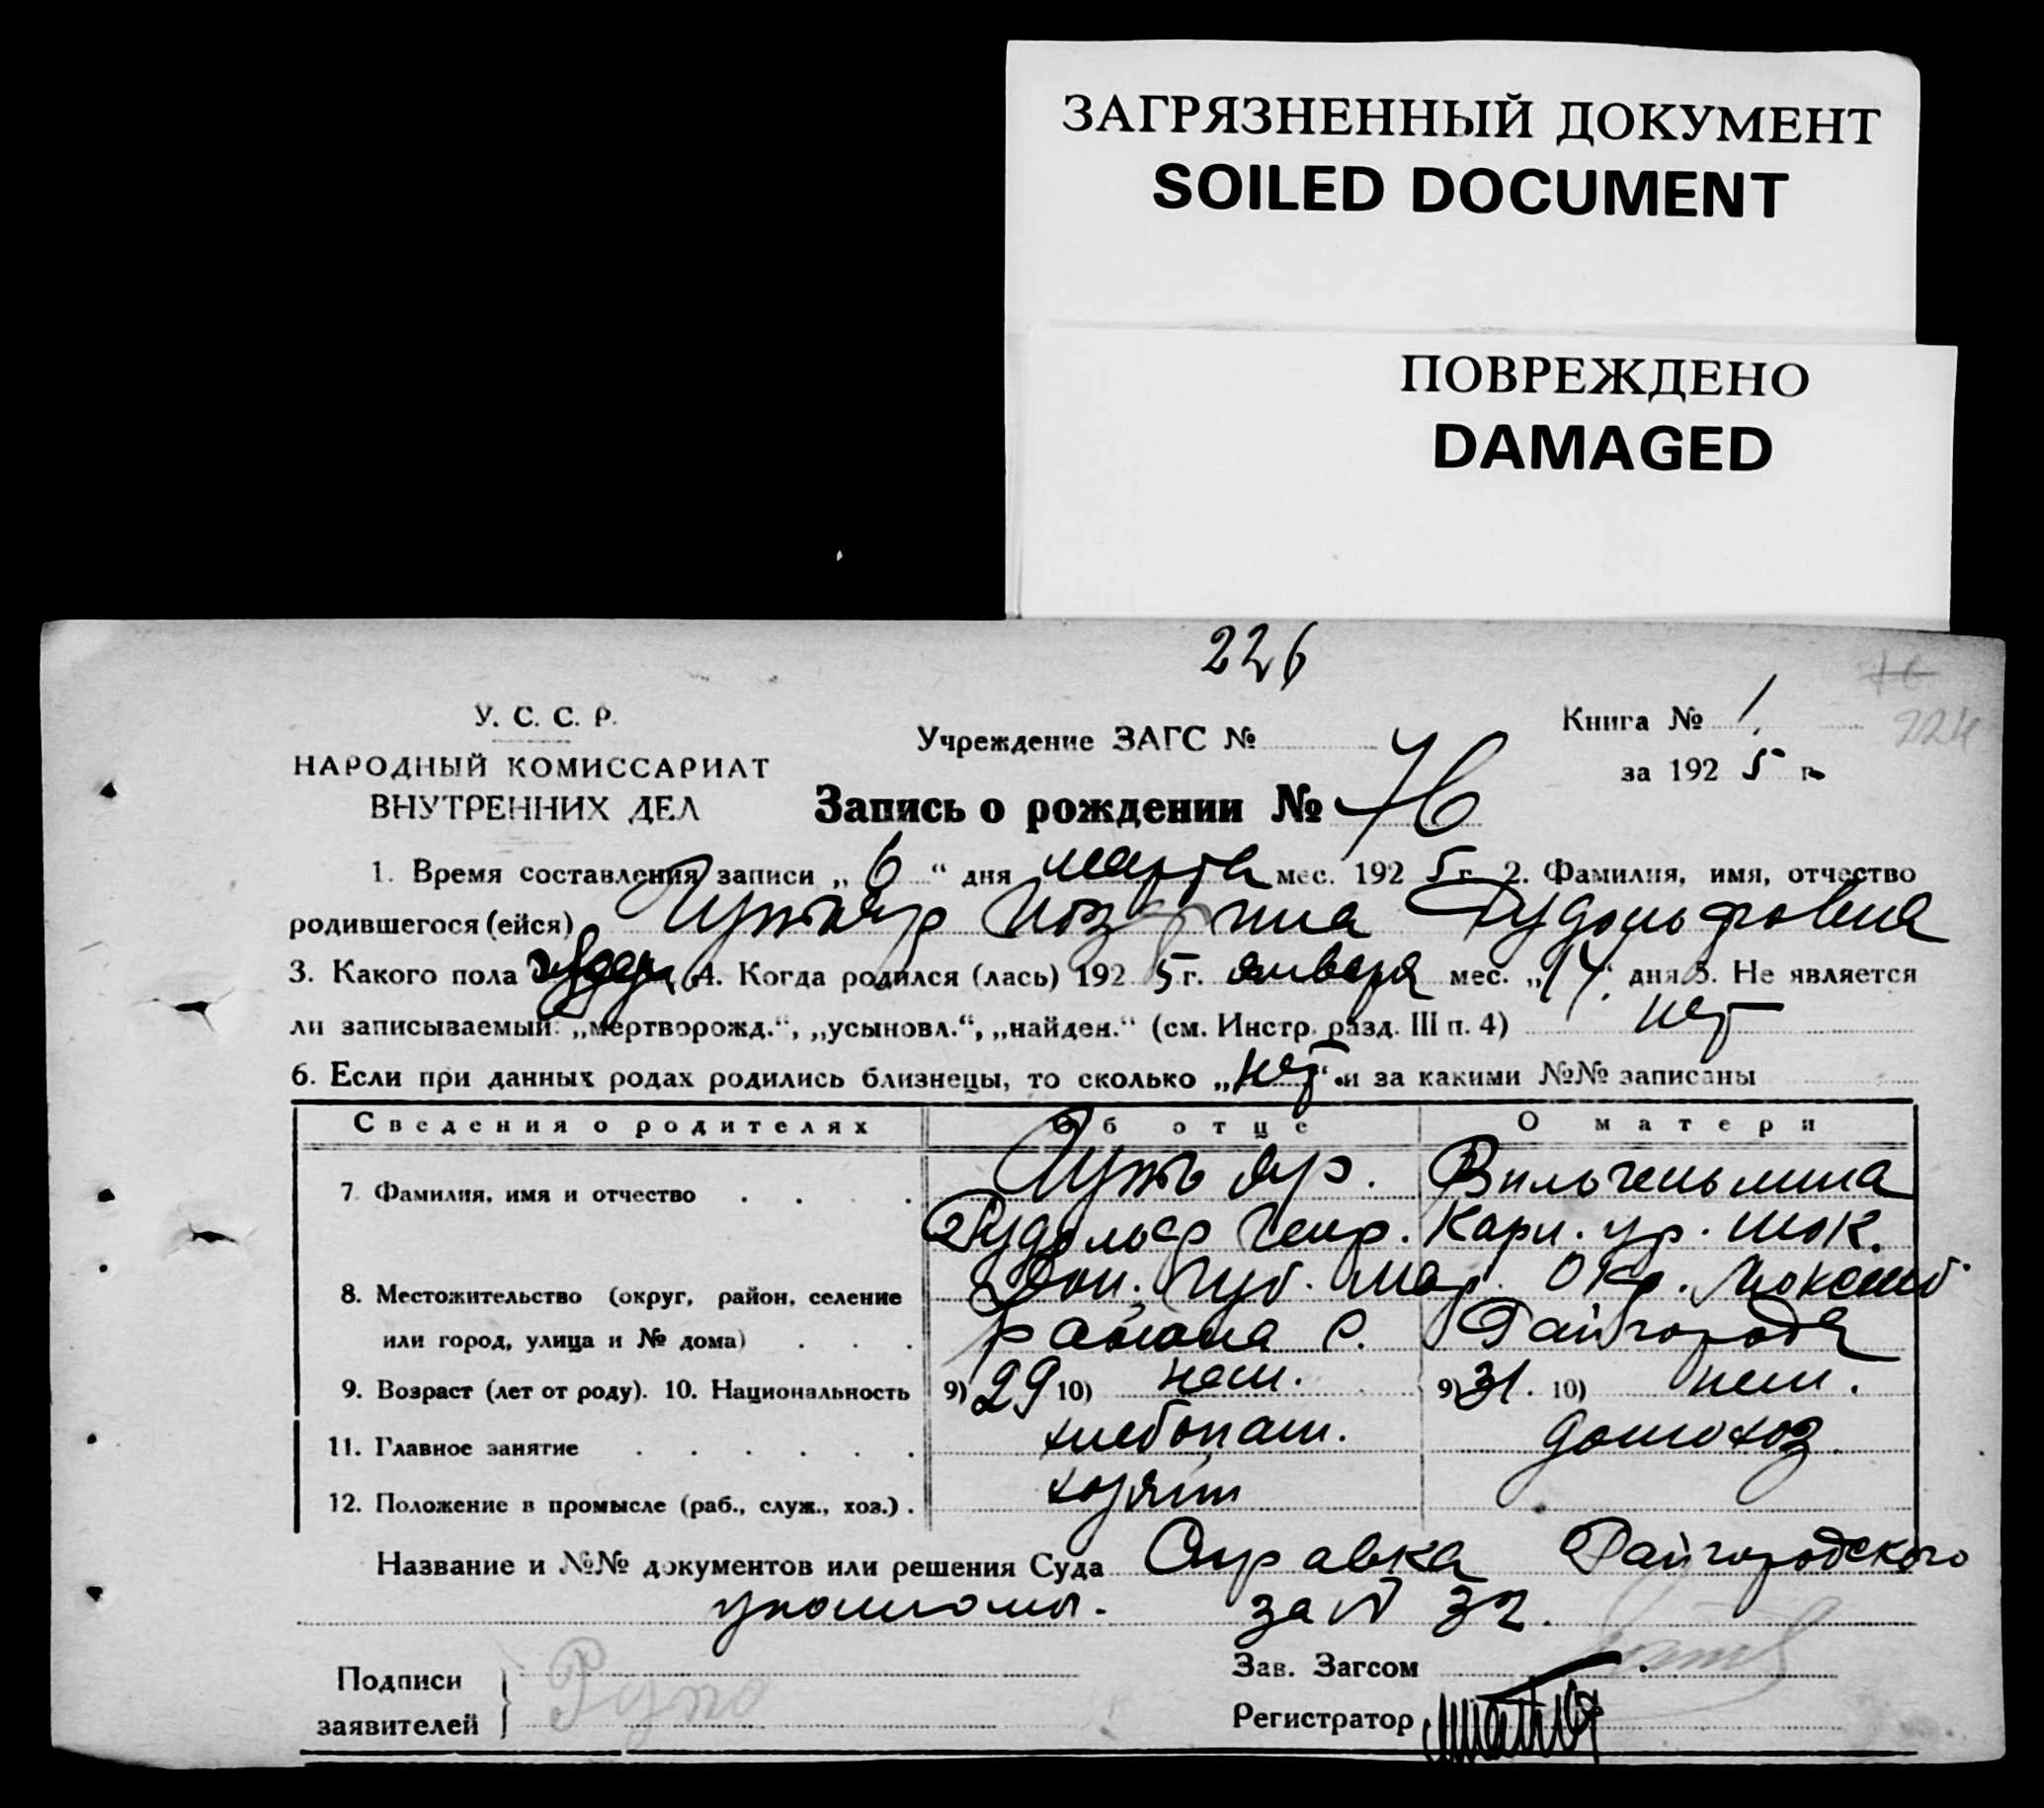 ЗАГРЯЗНЕННЫЙ ДОКУМЕНТ
SOILED DOCUMENT
ПОВРЕЖДЕНО
DAMAGED
226
У. С. С. Р.
НАРОДНЫЙ КОМИССАРИАТ
ВНУТРЕННИХ ДЕЛ
Учреждение ЗАГС №
Книга № 1
224
за 192 5 г.
Запись о рождении № 76
1. Время составления записи „ 6 “ дня марта мес. 192 5 г. 2. Фамилия, имя, отчество
родившегося (ейся) Рудольфовна
3. Какого пола 4. Когда родился (лась) 192 5 г. января мес. „14“ дня 5. Не является
ли записываемый: „мертворожд.“, „усыновл.“, „найден.“ (см. Инстр. разд. III п. 4) нет
6. Если при данных родах родились близнецы, то сколько „нет“ и за какими №№ записаны
Сведения о родителях Об отце О матери
7. Фамилия, имя и отчество . . . . Вильгельмина
Рудольф Генр. Карл. ур. Шок.
8. Местожительство (округ, район, селение Дон. Губ. Мар. Окр.
или город, улица и № дома) . . . района с. Райгорода
9. Возраст (лет от роду). 10. Национальность 9) 29 10) нем. 9) 31. 10) нем.
11. Главное занятие . . . . . . хлебопаш. домохоз.
12. Положение в промысле (раб., служ., хоз.) .
Название и №№ документов или решения Суда Справка Райгородского
за № 32.
Подписи
заявителей
Зав. Загсом
Регистратор